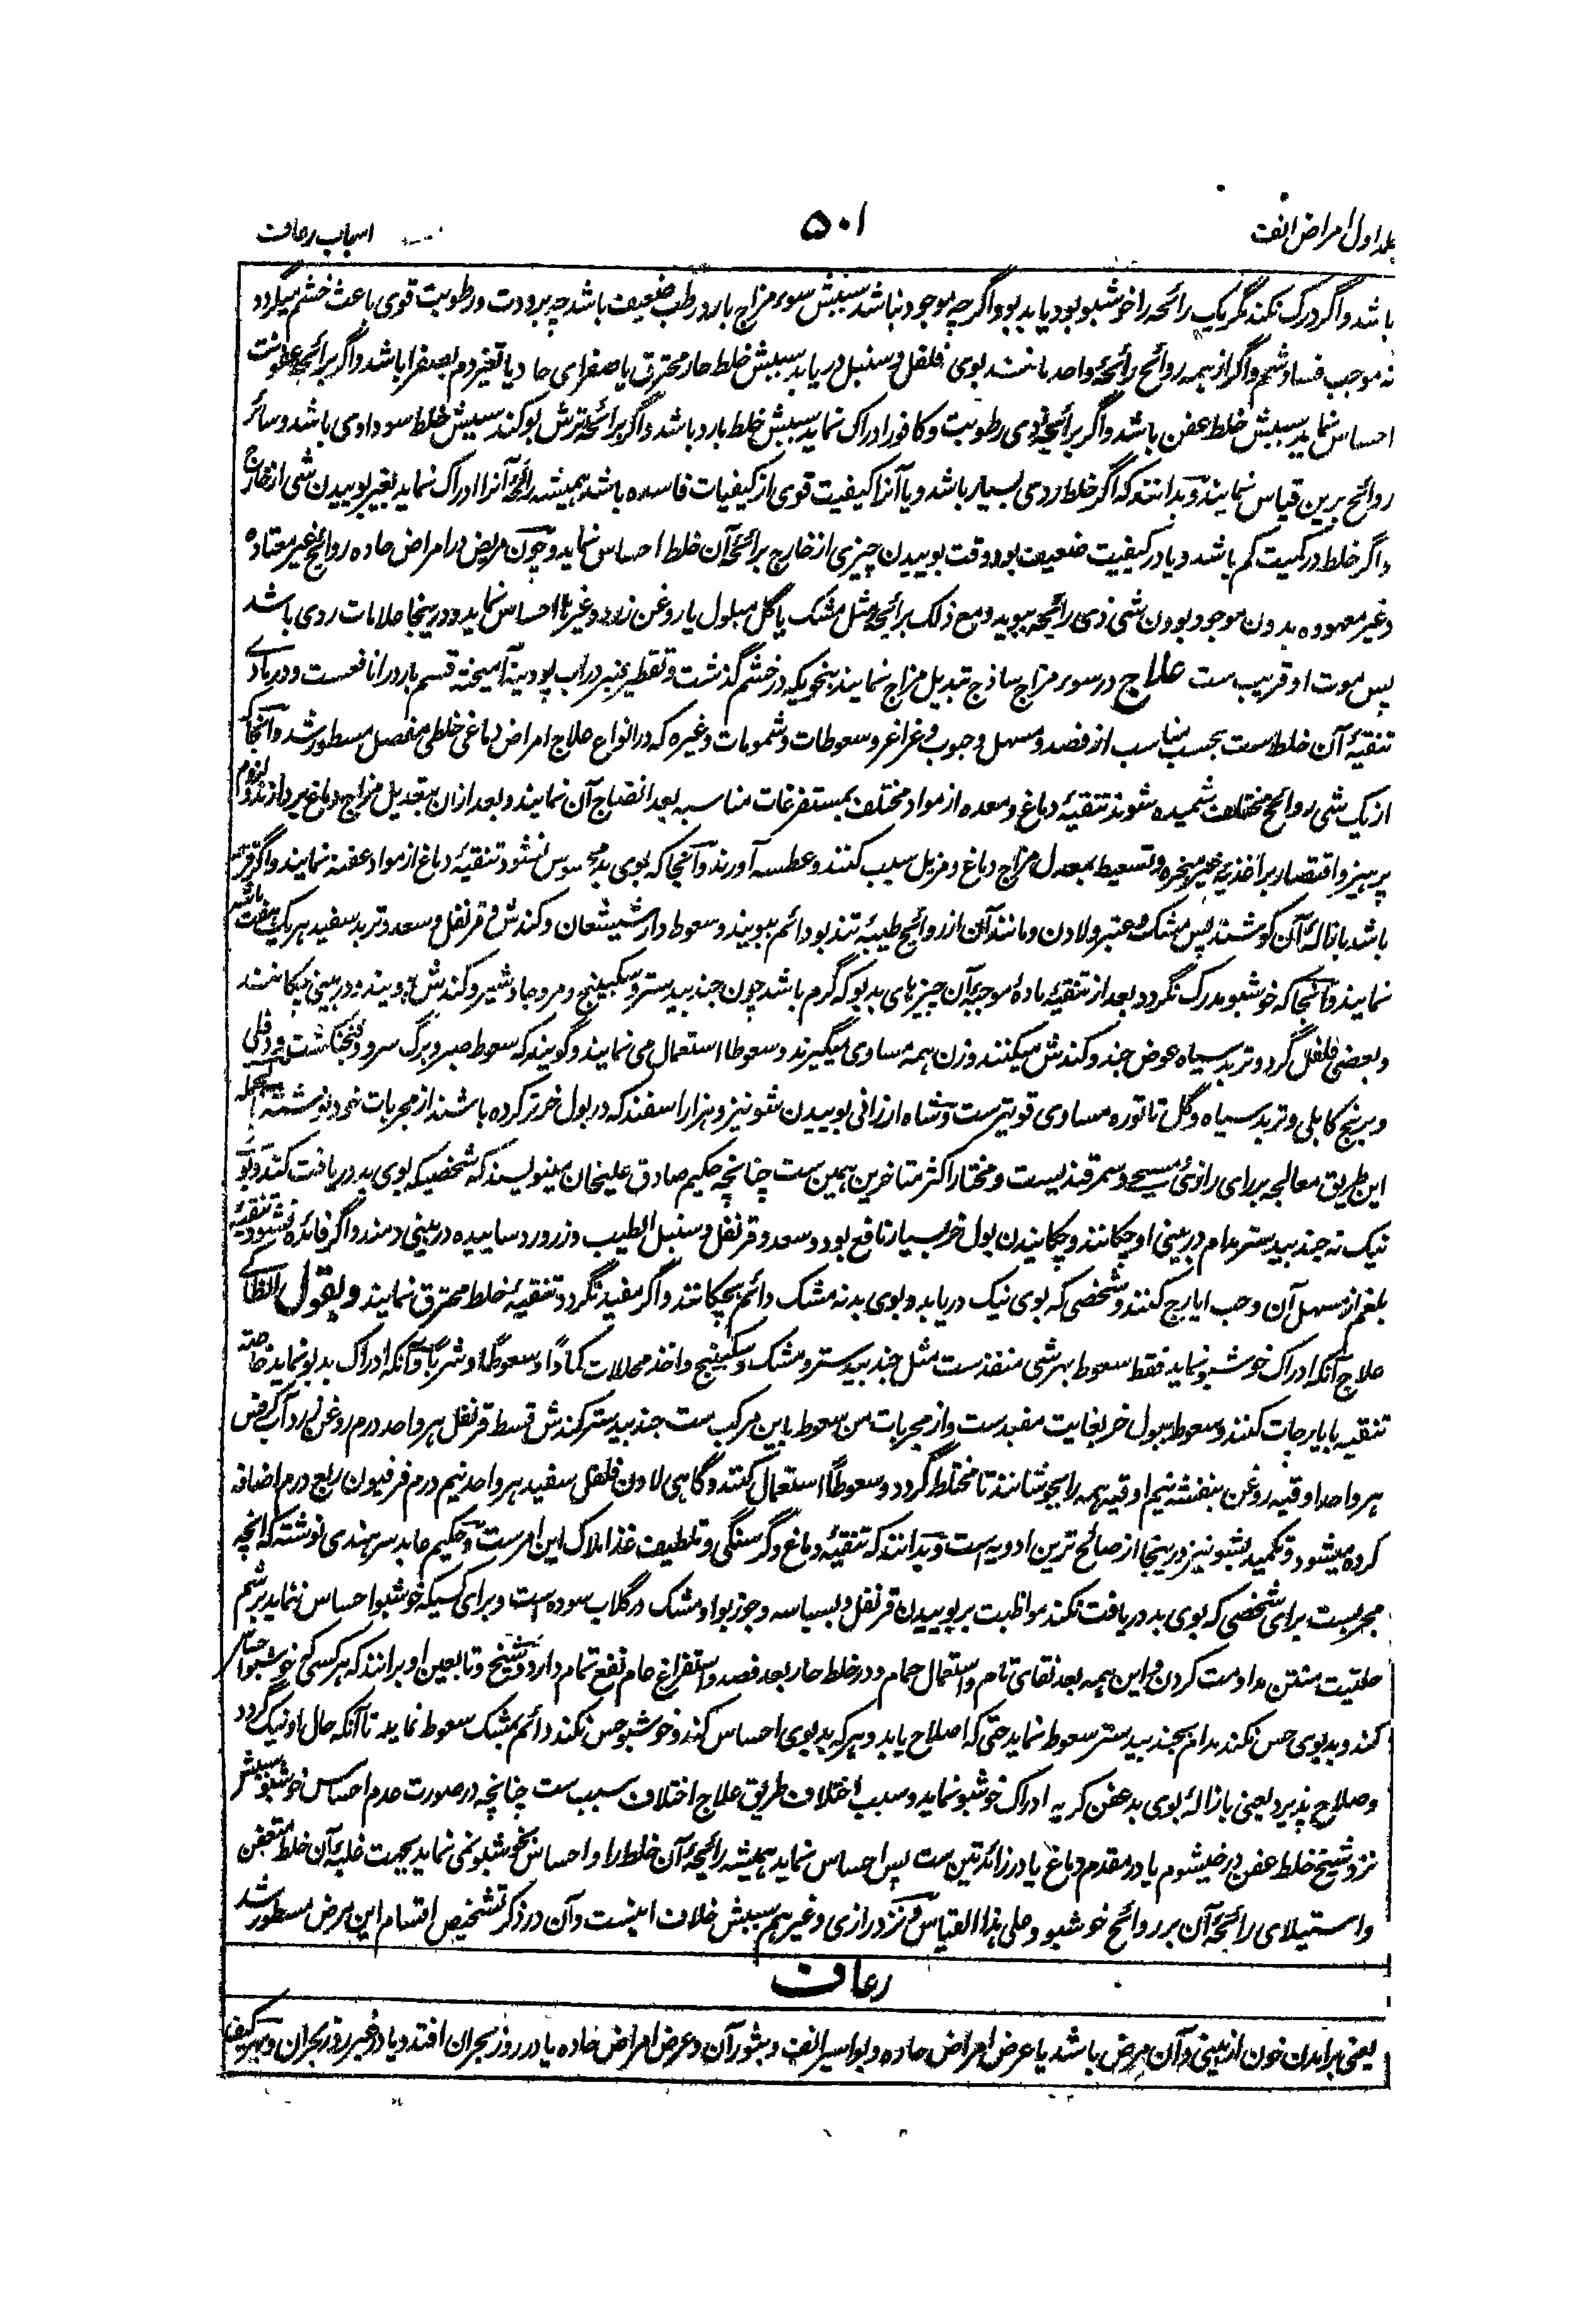 جلد اول امراض انف
۵۰۱
اسباب رعاف
باشد و اگر درک نکند مگر یک رائحه را خوشبو بود یا بدبو و اگرچه موجود نباشد سببش سوء مزاج بارد رطب ضعیف باشد چه برودت و رطوبت قوی باعث خشم میگردد
نه موجب فساد شم و اگر از همه روائح رائحهٔ واحد مانند بوی فلفل و سنبل دریابد سببش خلط حار محترق یا صفرای حاد یا تغیر دم بصفرا باشد و اگر برائحهٔ عفونت
احساس نماید سببش خلط عفن باشد و اگر برائحهٔ رطوبت و کافور ادراک نماید سببش خلط بارد باشد و اگر برائحهٔ ترش بو کند سببش خلط سوداوی باشد و سائر
روائح برین قیاس نمایند و بدانند که اگر خلط ردی بسیار باشد و یا آنرا کیفیت قوی از کیفیات فاسده باشد همیشه رائحهٔ آنرا ادراک نماید بغیر بوییدن شی از خارج
و اگر خلط در کمیت کم باشد و یا در کیفیت ضعیف بود وقت بوییدن چیزی از خارج برائحهٔ آن خلط احساس نماید و چون مریض در امراض حاده روائح غیر معتاده
و غیر معهوده بدون موجود بودن شی ذی رائحه ببوید و مع ذلک برائحهٔ مثل مشک یا گل مبلول یا روغن زرد و غیرها احساس نماید و درینجا علامات ردی باشد
پس موت او قریب ست علاج در سوء مزاج ساذج تبدیل مزاج نمایند بنحویکه در خشم گذشت و تقطیر عنبر در آب پودینه آمیخته قسم بارد را نافعست و در مادی
تنقیهٔ آن خلط ست بحسب مناسب از فصد و مسهل و حبوب و غراغر و سعوطات و شمومات و غیره که در انواع علاج امراض دماغی خلطی مفصل مسطور شد و آنجا که
از یک شی روائح مختلف شمیده شوند تنقیهٔ دماغ و معده از مواد مختلف بمستفرغات مناسبه بعد انضاج آن نمایند و بعد ازان بتعدیل مزاج دماغ پردازند و لزوم
پرهیز و اقتصار بر اغذیهٔ غیر مبخره و تسعیط بمعدل مزاج دماغ و مزیل سبب کنند و عطسه آورند و آنجا که بوی بد محسوس نشود تنقیهٔ دماغ از مواد عفنه نمایند و اگر قرحه
باشد بازالهٔ آن کوشند پس مشک و عنبر و لادن و مانند آن از روائح طیبهٔ تند بو دائم ببویند و سعوط دارشیشعان و کندش و قرنفل و سعد و تربد سفید هر یک هفت ماشه
نمایند و آنجا که خوشبو مدرک نگردد بعد از تنقیهٔ مادهٔ موجبهٔ آن چیزهای بدبو که گرم باشد چون جندبیدستر و سکبینج و مر و جاوشیر و کندش ببویند و در بینی چکانند
و بعضی فلفل گرد و تربد سیاه عوض جند و کندش میکنند و وزن همه مساوی میگیرند و سعوطا استعمال می نمایند و گویند که سعوط صبر و برگ سرو و فنجنکشت و دفلی
و برنج کابلی و تربد سیاه و گل تاتوره مساوی قویترست و شاه ارزانی بوییدن شونیز و هزار اسفند که در بول خر تر کرده باشند از مجربات خود نوشته بالجمله
این طریق معالجه بر رای رازی و مسیحی و سمرقندیست و مختار اکثر متاخرین همین ست چنانچه حکیم صادق علیخان مینویسند که شخصیکه بوی بد دریافت کند و بوی
نیک نه جندبیدستر مدام در بینی او چکانند و چکانیدن بول خر بسیار نافع بود و سعد و قرنفل و سنبل الطیب و زر ورد ساییده در بینی دمند و اگر فائده نشود تنقیهٔ
بلغم از مسهل آن و حب ایارج کنند و شخصی که بوی نیک دریابد و بوی بد نه مشک دائم بچکانند و اگر مفید نگردد تنقیهٔ خلط محترق نمایند و بقول انطاکی
علاج آنکه ادراک خوشبو نماید فقط سعوط بهر شی منفذست مثل جندبیدستر و مشک و سکبینج و اخذ محللات کمادًا و سعوطًا و شربًا و آنکه ادراک بدبو نماید خاصة
تنقیه بایارجات کنند و سعوط ببول خر بغایت مفیدست و از مجربات من سعوط باین مرکب ست جندبیدستر کندش قسط قرنفل هر واحد درم روغن آب کرفس
هر واحد اوقیه روغن بنفشه نیم اوقیه همه را بجوشانند تا مختلط گردد و سعوطًا استعمال کنند و گاهی لادن فلفل سفید هر واحد نیم درم فرفیون ربع درم اضافه
کرده میشود و تکمید بشونیز درینجا از صالح ترین ادویه است و بدانند که تنقیهٔ دماغ و گرسنگی و تلطیف غذا ملاک این امرست و حکیم عابد سرهندی نوشته که آنچه
مجربست برای شخصی که بوی بد دریافت نکند مواظبت بر بوییدن قرنفل و بسباسه و جوزبوا و مشک در گلاب سوده است و برای کسیکه خوشبو احساس ننماید بر شم
حلتیت منتن مداومت کردن و این همه بعد نقای تام و استعمال حمام و در خلط حار بعد فصد و استفراغ عام نفع تمام دارد و شیخ و تابعین او برانند که هر کسی که خوشبو احساس
کند و بدبوی حس نکند مدام بجندبیدستر سعوط نماید حتی که اصلاح یابد و هر که بدبوی احساس کند و خوشبو حس نکند دائم بمشک سعوط نماید تا آنکه حال او نیک گردد
و صلاح پذیرد یعنی بازالهٔ بوی بد عفن کریه ادراک خوشبو نماید و سبب اختلاف طریق علاج اختلاف سبب ست چنانچه در صورت عدم احساس خوشبو سببش
نزد شیخ خلط عفن در خیشوم یا در مقدم دماغ یا در زائدتین ست پس احساس نماید همیشه رائحهٔ آن خلط را و احساس بخوشبو نمی نماید بجهت غلبهٔ آن خلط متعفن
و استیلای رائحهٔ آن بر روائح خوشبو و علی هذا القیاس و نزد رازی و غیرهم سببش خلاف اینست و آن در ذکر تشخیص اقسام این مرض مسطور شد
رعاف
یعنی برآمدن خون از بینی و آن مرض باشد یا عرض امراض حاده و بواسیر الانف و بثور آن و عرض امراض حاده یا در روز بحران افتد و یا در غیر روز بحران و بهر کیف